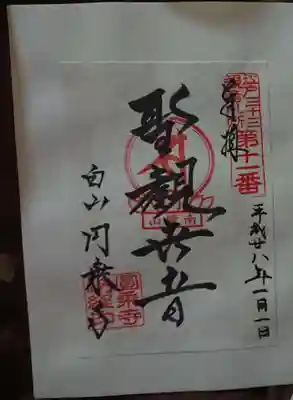 奉拝
江戸三十三
観音札所
第十一番
平成廿八年一月一日
聖観世音
南縁山
白山 円乗寺
圓乗寺